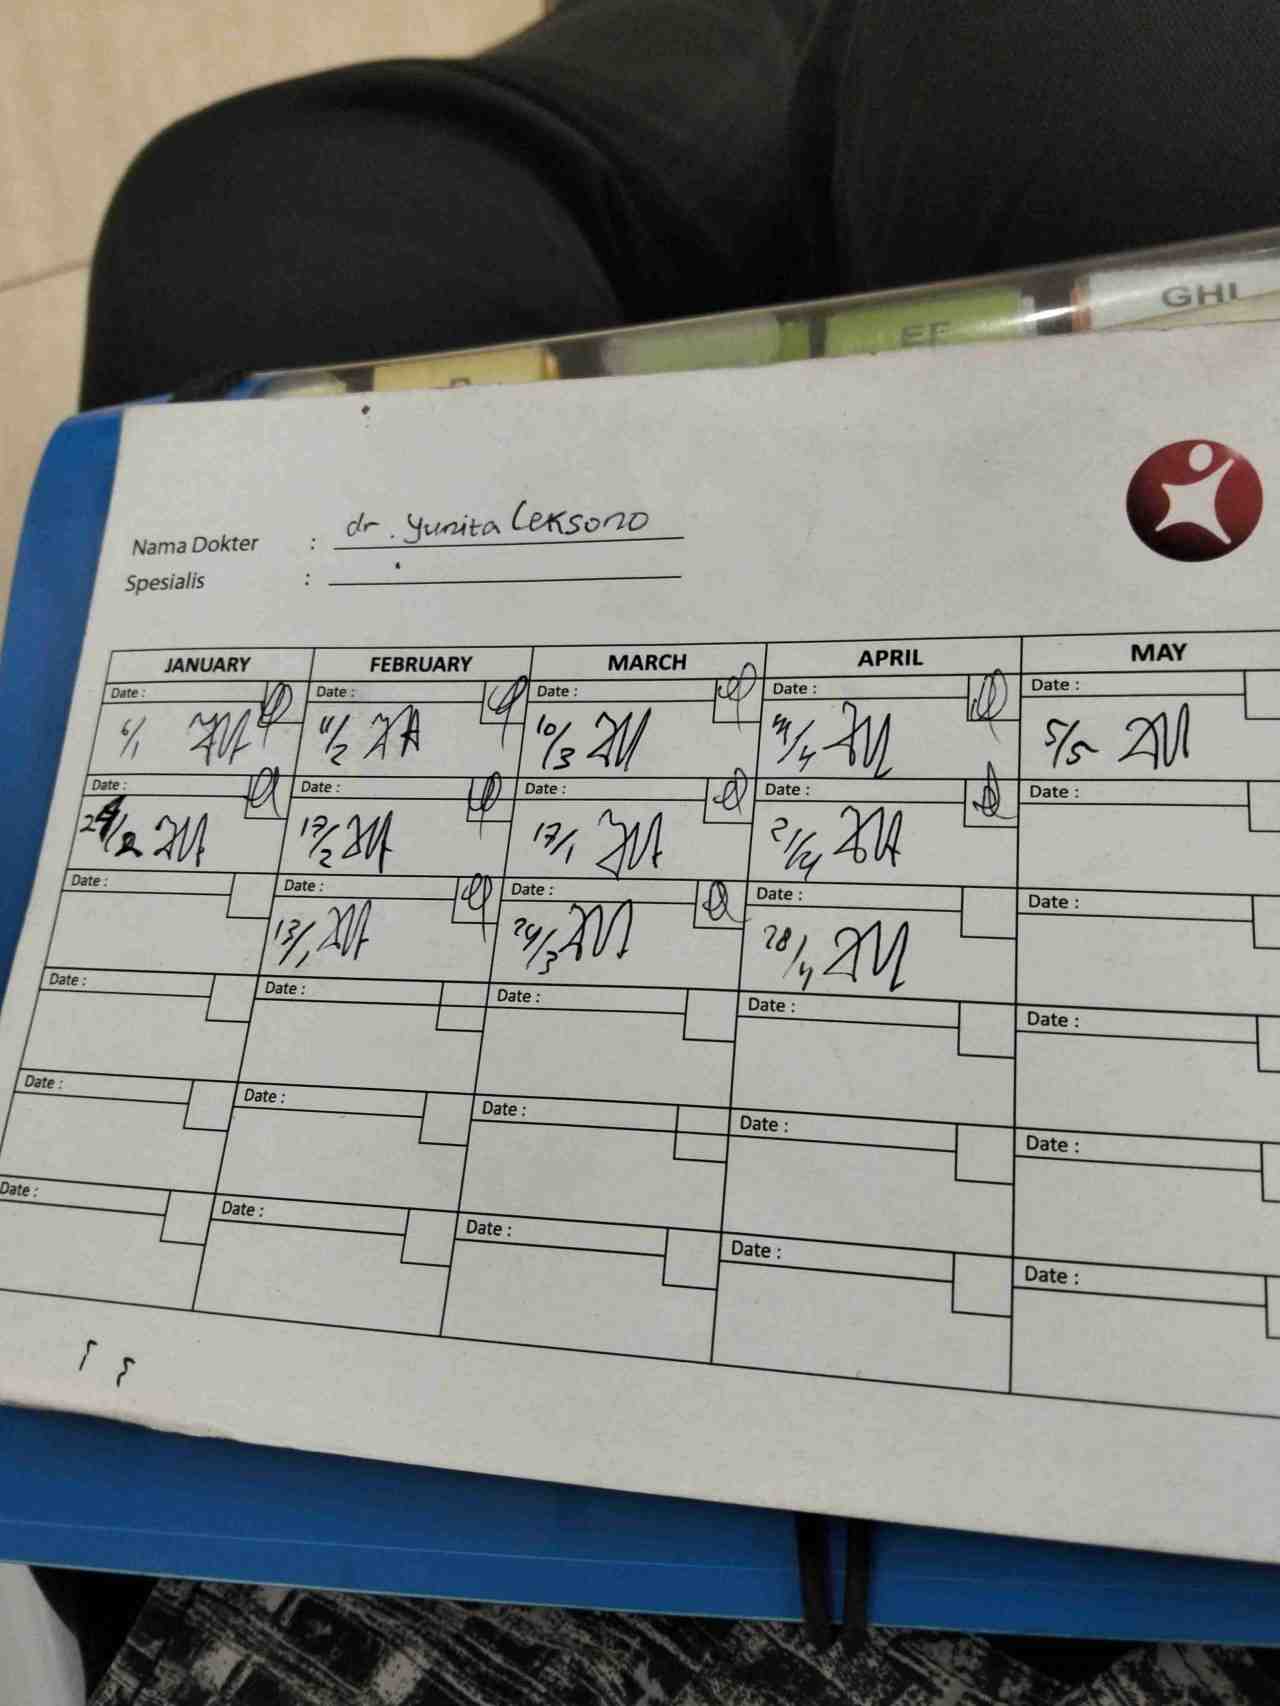 GHI
EF
Nama Dokter : dr. Yunita Leksono
Spesialis :
JANUARY FEBRUARY MARCH APRIL MAY
Date : Date : Date : Date : Date :
6/1 11/2 10/3 5/5
Date : Date : Date : Date : Date :
17/2 17/1 21/4
Date : Date : Date : Date : Date :
13/1 24/3 28/4
Date : Date : Date : Date : Date :
Date : Date : Date : Date : Date :
Date : Date : Date : Date : Date :